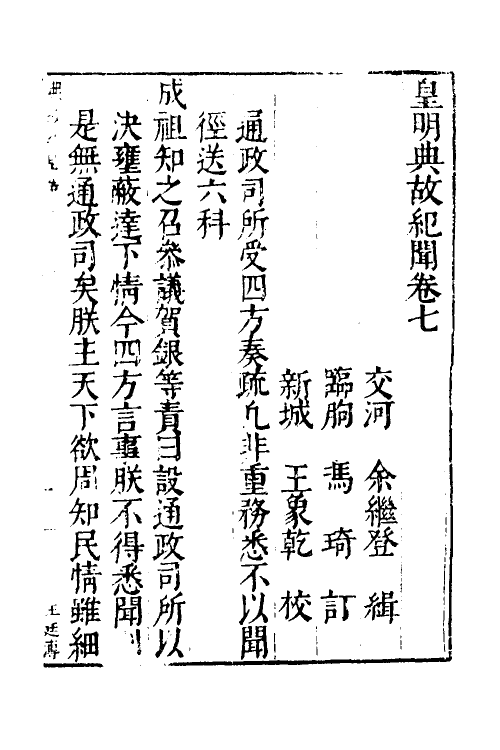 皇明典故紀聞卷七
交河 余繼登 緝
臨朐 馮琦 訂
新城 王象乾 校
通政司所受四方奏疏凡非重務悉不以聞
徑送六科
成祖知之召參議賀銀等責曰設通政司所以
決壅蔽達下情今四方言事朕不得悉聞則
是無通政司矣朕主天下欲周知民情雖細
王廷